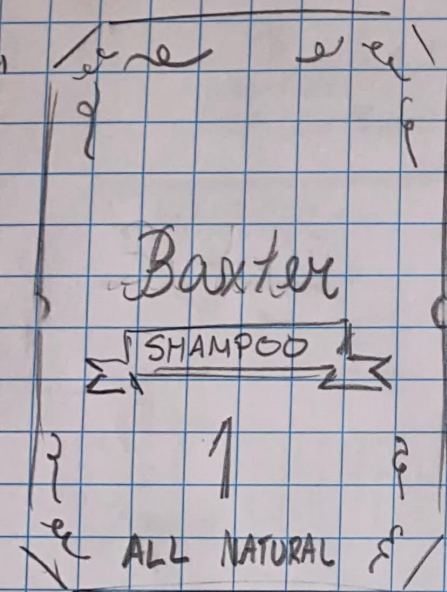 Baxter
SHAMPOO
1
ALL NATURAL